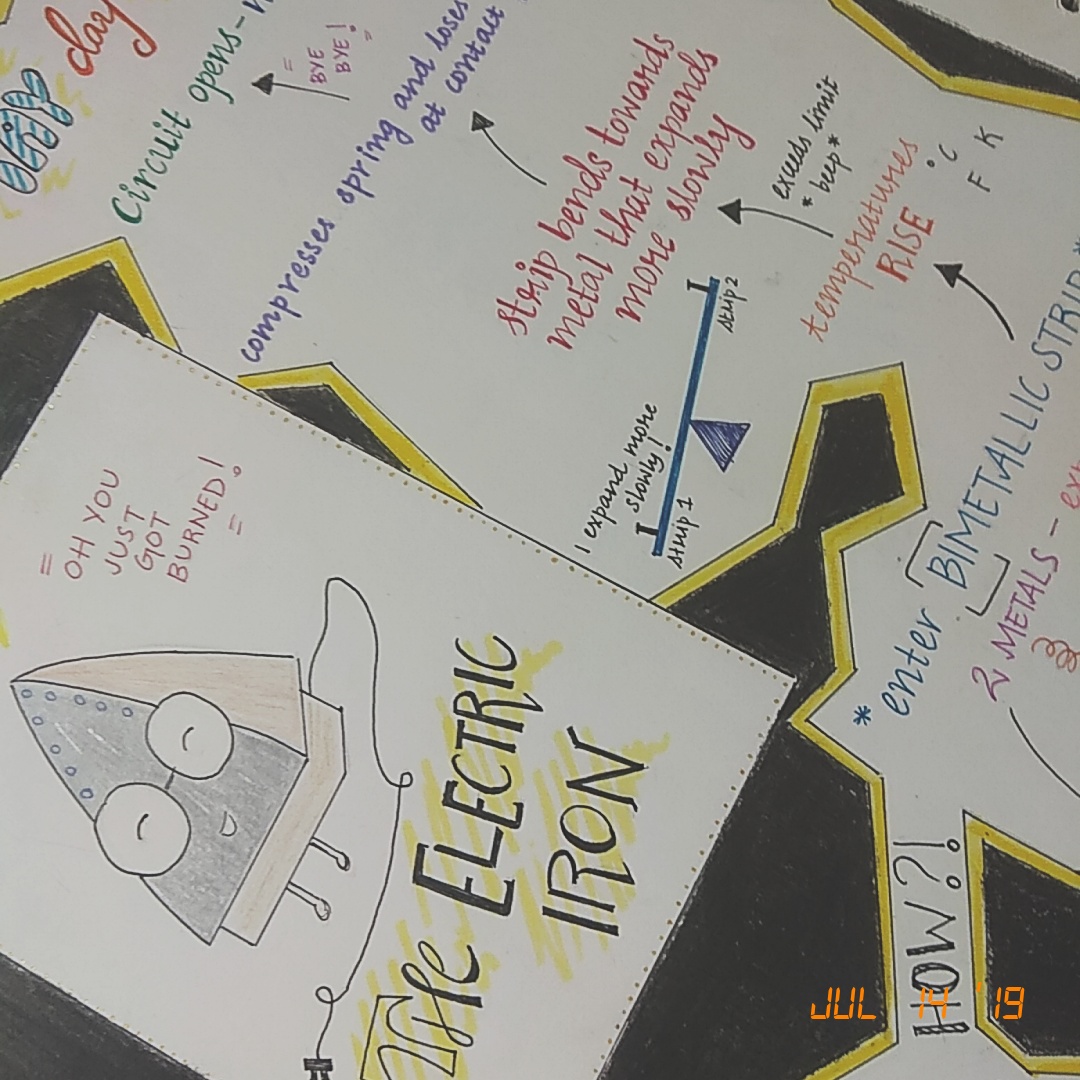 The ELECTRIC
IRON
OH YOU
JUST
GOT
BURNED!
HOW?!
* enter BIMETALLIC STRIP*
2 METALS -
temperatures
RISE
°C
F K
exceeds limit
* beep *
Strip bends towards
metal that expands
more slowly
I expand more
slowly!
strip 1
strip 2
compresses spring and loses
at contact
Circuit opens-
BYE
BYE!
day
JUL 14 '19